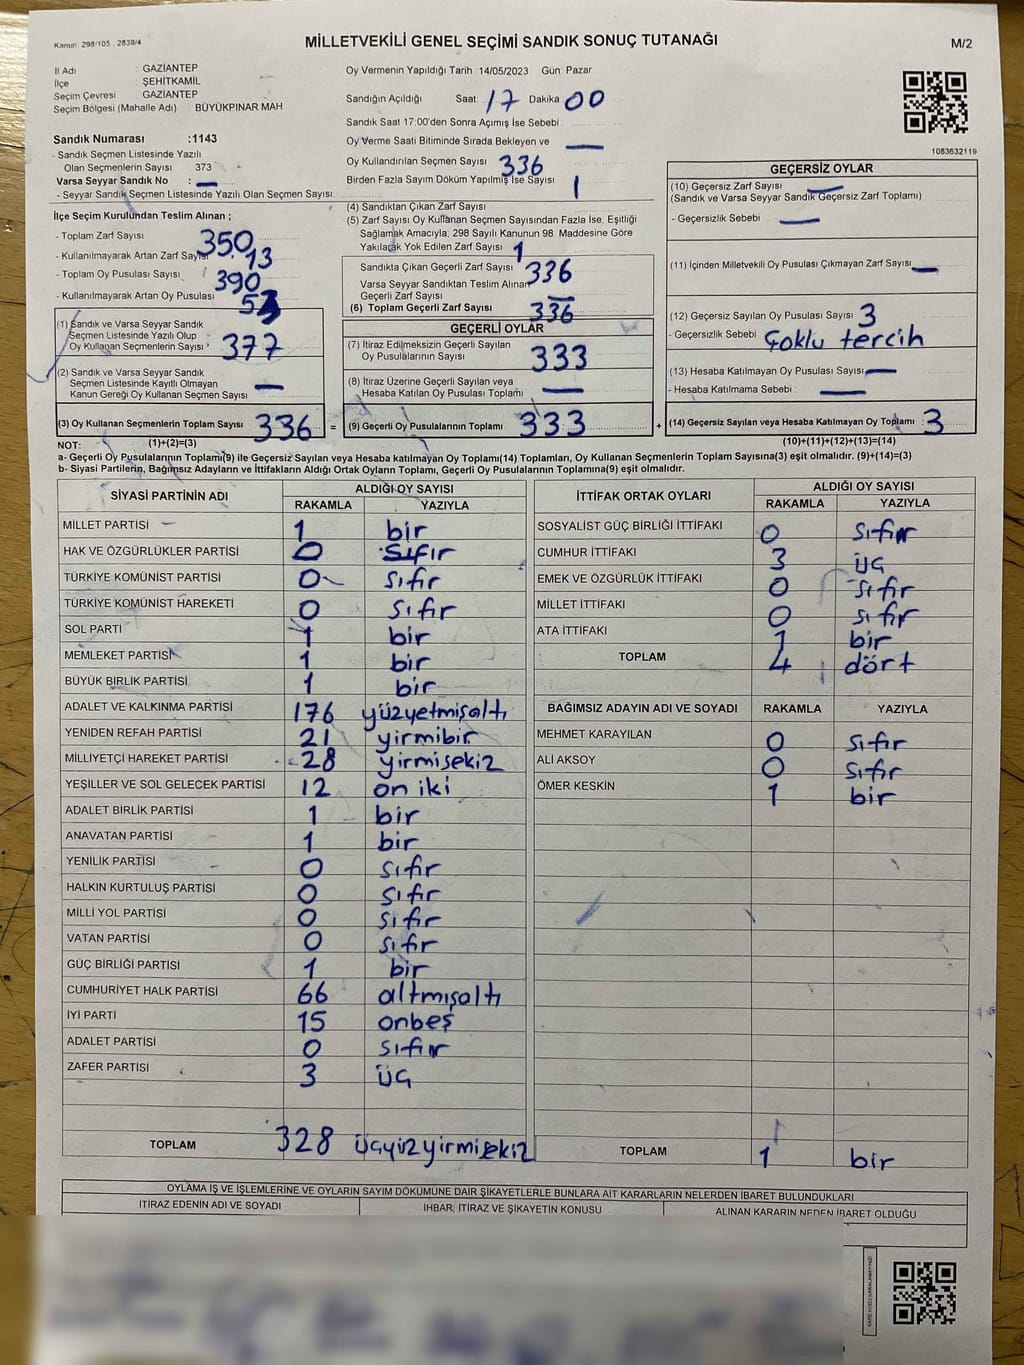 Kanun 298/105 , 2839/4
MİLLETVEKİLİ GENEL SEÇİMİ SANDIK SONUÇ TUTANAĞI
M/2
İl Adı : GAZİANTEP
İlçe : ŞEHİTKAMİL
Seçim Çevresi : GAZİANTEP
Seçim Bölgesi (Mahalle Adı) : BÜYÜKPINAR MAH
Sandık Numarası :1143
- Sandık Seçmen Listesinde Yazılı
Olan Seçmenlerin Sayısı : 373
Varsa Seyyar Sandık No : —
- Seyyar Sandık Seçmen Listesinde Yazılı Olan Seçmen Sayısı:
Oy Vermenin Yapıldığı Tarih : 14/05/2023 Gün: Pazar
Sandığın Açıldığı Saat: 17 Dakika 00
Sandık Saat 17:00'den Sonra Açımış İse Sebebi :
Oy Verme Saati Bitiminde Sırada Bekleyen ve —
Oy Kullandırılan Seçmen Sayısı 336
Birden Fazla Sayım Döküm Yapılmış İse Sayısı 1
1083632119
İlçe Seçim Kurulundan Teslim Alınan ;
- Toplam Zarf Sayısı : 350
- Kullanılmayarak Artan Zarf Sayısı 13
- Toplam Oy Pusulası Sayısı : 390
- Kullanılmayarak Artan Oy Pusulası 53
(1) Sandık ve Varsa Seyyar Sandık
Seçmen Listesinde Yazılı Olup
Oy Kullanan Seçmenlerin Sayısı : 377
(2) Sandık ve Varsa Seyyar Sandık
Seçmen Listesinde Kayıtlı Olmayan
Kanun Gereği Oy Kullanan Seçmen Sayısı —
(3) Oy Kullanan Seçmenlerin Toplam Sayısı 336 =
(4) Sandıktan Çıkan Zarf Sayısı
(5) Zarf Sayısı Oy Kullanan Seçmen Sayısından Fazla İse, Eşitliği
Sağlamak Amacıyla; 298 Sayılı Kanunun 98. Maddesine Göre
Yakılarak Yok Edilen Zarf Sayısı 1
Sandıkta Çıkan Geçerli Zarf Sayısı 336
Varsa Seyyar Sandıktan Teslim Alınan
Geçerli Zarf Sayısı —
(6) Toplam Geçerli Zarf Sayısı 336
GEÇERLİ OYLAR
(7) İtiraz Edilmeksizin Geçerli Sayılan
Oy Pusulalarının Sayısı 333
(8) İtiraz Üzerine Geçerli Sayılan veya
Hesaba Katılan Oy Pusulası Toplamı —
(9) Geçerli Oy Pusulalarının Toplamı 333 +
GEÇERSİZ OYLAR
(10) Geçersiz Zarf Sayısı —
(Sandık ve Varsa Seyyar Sandık Geçersiz Zarf Toplamı)
- Geçersizlik Sebebi : —
(11) İçinden Milletvekili Oy Pusulası Çıkmayan Zarf Sayısı —
(12) Geçersiz Sayılan Oy Pusulası Sayısı 3
- Geçersizlik Sebebi : Çoklu tercih
(13) Hesaba Katılmayan Oy Pusulası Sayısı —
- Hesaba Katılmama Sebebi : —
(14) Geçersiz Sayılan veya Hesaba Katılmayan Oy Toplamı : 3
NOT: (1)+(2)=(3) (10)+(11)+(12)+(13)=(14)
a- Geçerli Oy Pusulalarının Toplamı(9) ile Geçersiz Sayılan veya Hesaba katılmayan Oy Toplamı(14) Toplamları, Oy Kullanan Seçmenlerin Toplam Sayısına(3) eşit olmalıdır. (9)+(14)=(3)
b- Siyasi Partilerin, Bağımsız Adayların ve İttifakların Aldığı Ortak Oyların Toplamı, Geçerli Oy Pusulalarının Toplamına(9) eşit olmalıdır.
SİYASİ PARTİNİN ADI ALDIĞI OY SAYISI
RAKAMLA YAZIYLA
MİLLET PARTİSİ 1 bir
HAK VE ÖZGÜRLÜKLER PARTİSİ 0 sıfır
TÜRKİYE KOMÜNİST PARTİSİ 0 sıfır
TÜRKİYE KOMÜNİST HAREKETİ 0 sıfır
SOL PARTİ 1 bir
MEMLEKET PARTİSİ 1 bir
BÜYÜK BİRLİK PARTİSİ 1 bir
ADALET VE KALKINMA PARTİSİ 176 yüzyetmişaltı
YENİDEN REFAH PARTİSİ 21 yirmibir
MİLLİYETÇİ HAREKET PARTİSİ 28 yirmisekiz
YEŞİLLER VE SOL GELECEK PARTİSİ 12 on iki
ADALET BİRLİK PARTİSİ 1 bir
ANAVATAN PARTİSİ 1 bir
YENİLİK PARTİSİ 0 sıfır
HALKIN KURTULUŞ PARTİSİ 0 sıfır
MİLLİ YOL PARTİSİ 0 sıfır
VATAN PARTİSİ 0 sıfır
GÜÇ BİRLİĞİ PARTİSİ 1 bir
CUMHURİYET HALK PARTİSİ 66 altmışaltı
İYİ PARTİ 15 onbeş
ADALET PARTİSİ 0 sıfır
ZAFER PARTİSİ 3 üç
TOPLAM 328 üçyüzyirmisekiz
İTTİFAK ORTAK OYLARI ALDIĞI OY SAYISI
RAKAMLA YAZIYLA
SOSYALİST GÜÇ BİRLİĞİ İTTİFAKI 0 sıfır
CUMHUR İTTİFAKI 3 üç
EMEK VE ÖZGÜRLÜK İTTİFAKI 0 sıfır
MİLLET İTTİFAKI 0 sıfır
ATA İTTİFAKI 1 bir
TOPLAM 4 dört
BAĞIMSIZ ADAYIN ADI VE SOYADI RAKAMLA YAZIYLA
MEHMET KARAYILAN 0 sıfır
ALİ AKSOY 0 sıfır
ÖMER KESKİN 1 bir
TOPLAM 1 bir
OYLAMA İŞ VE İŞLEMLERİNE VE OYLARIN SAYIM DÖKÜMÜNE DAİR ŞİKAYETLERLE BUNLARA AİT KARARLARIN NELERDEN İBARET BULUNDUKLARI
İTİRAZ EDENİN ADI VE SOYADI İHBAR, İTİRAZ VE ŞİKAYETİN KONUSU ALINAN KARARIN NEDEN İBARET OLDUĞU